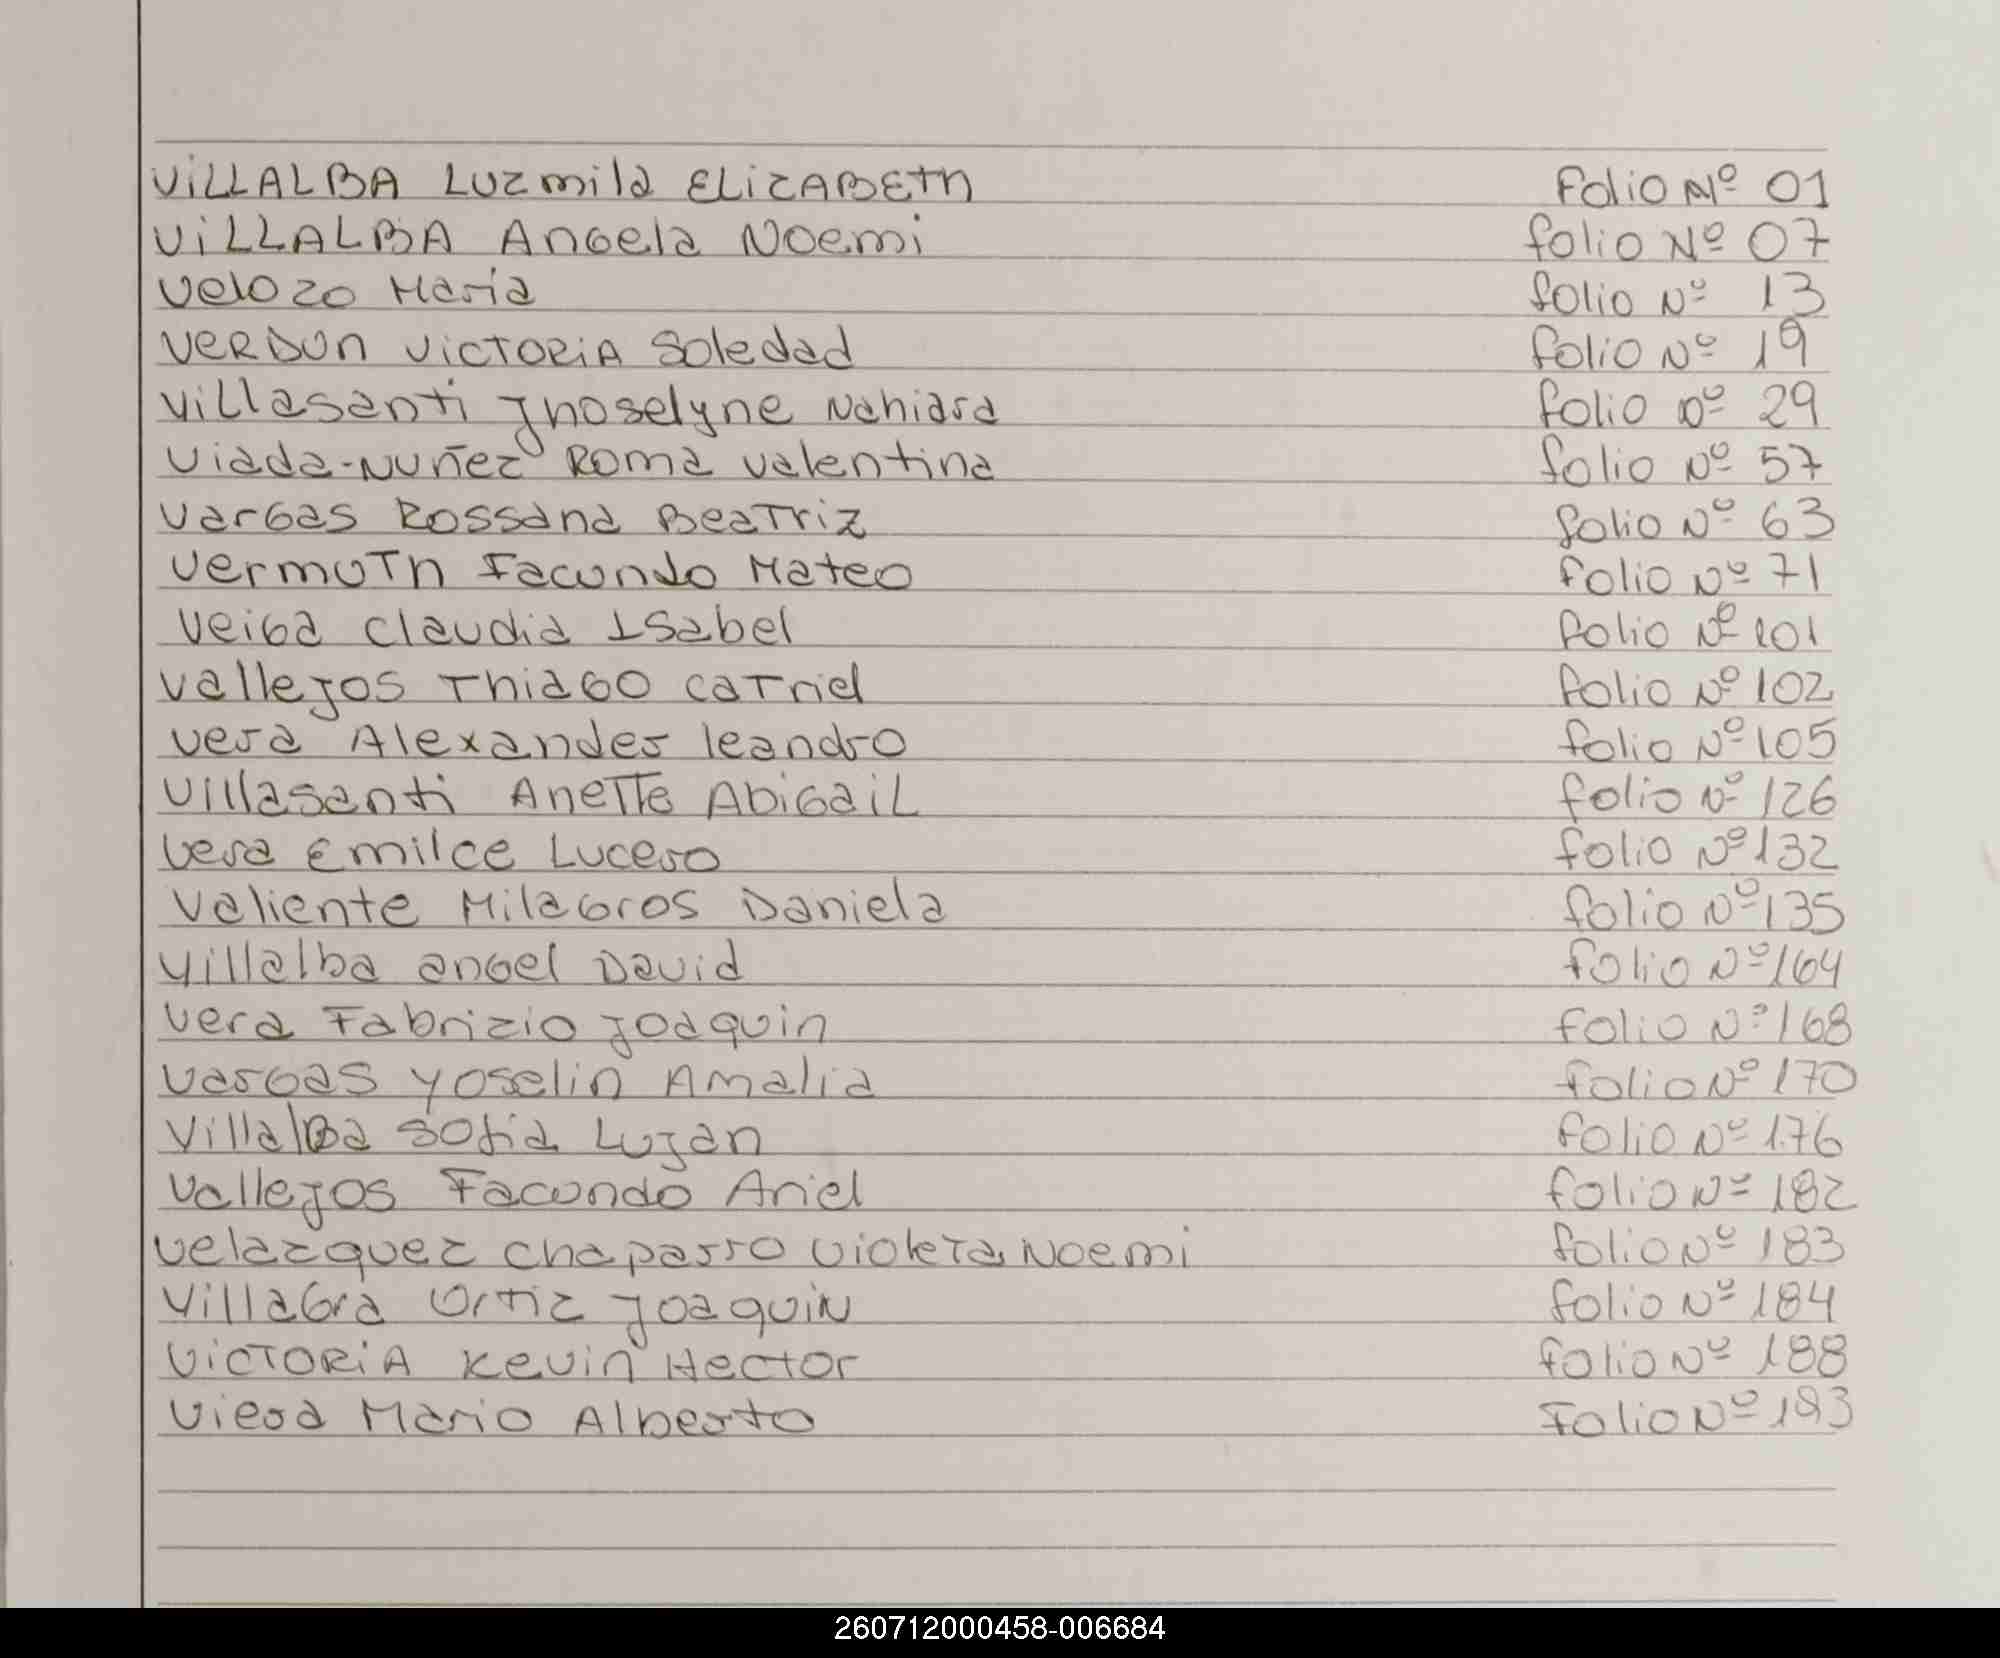 VILLALBA LUZmila ELIZABETh Folio Nº 01
VILLALBA Angela Noemi folio Nº 07
Velozo Maria folio Nº 13
VERDUn VICTORIA Soledad folio Nº 19
Villasanti Jhoselyne Nahiara folio nº 29
Viada-Nuñez Roma Valentina folio Nº 57
Vargas Rossana Beatriz folio Nº 63
Vermuth Facundo Mateo folio Nº 71
Veiga Claudia Isabel folio Nº 101
Vallejos Thiago Catriel folio Nº 102
Vera Alexander leandro folio Nº 105
Villasanti Anette Abigail folio Nº 126
Vera Emilce Lucero folio Nº 132
Valiente Milagros Daniela folio Nº 135
Villalba angel David folio Nº 164
Vera Fabrizio Joaquin folio Nº 168
Vargas Yoselin Amalia folio Nº 170
Villalba Sofia Lujan folio Nº 176
Vallejos Facundo Ariel folio Nº 182
Velazquez Chaparro Violeta Noemi folio Nº 183
Villagra Ortiz Joaquin folio Nº 184
VICTORIA Kevin Hector folio Nº 188
Viera Mario Alberto Folio Nº 193
260712000458-006684